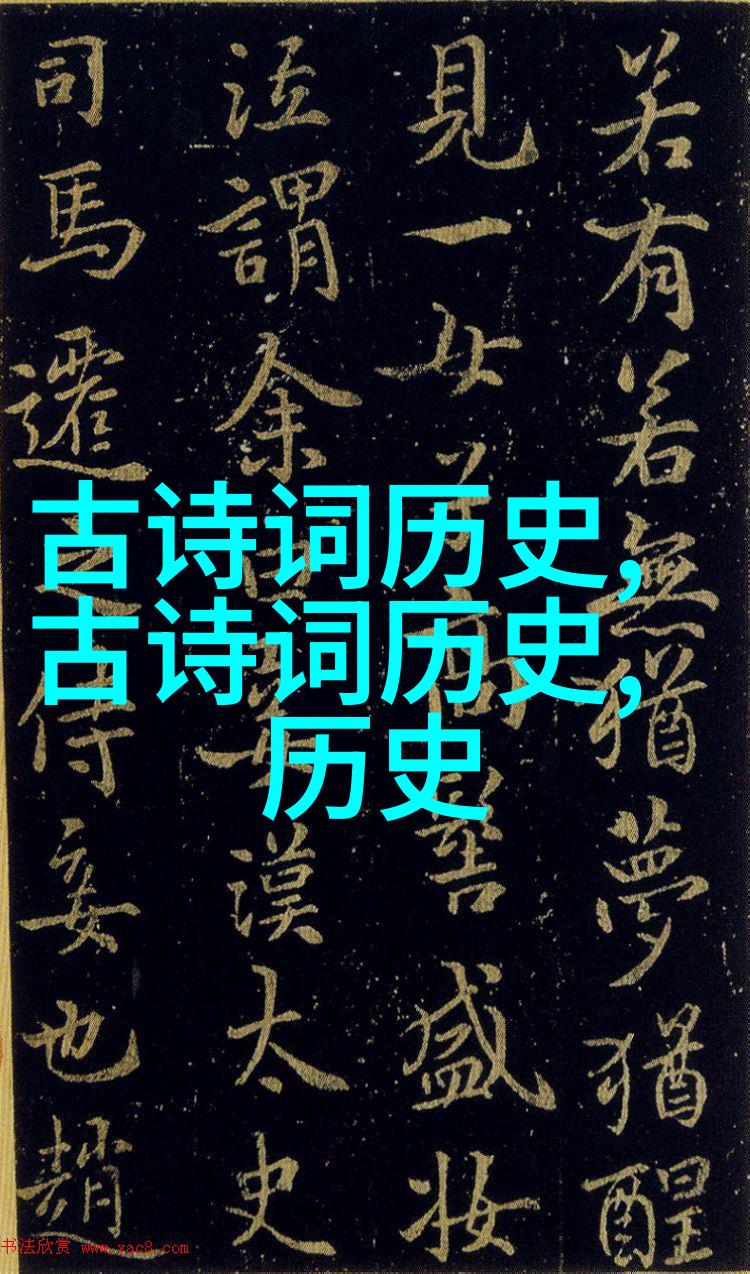 若有若無猶夢猶醒
見一女高髻盛妝
泣謂余曰妾漢太史
司馬遷之侍妾也趙
古诗词历史,
古诗词历史,
历史
书法欣赏 www.yac8.com